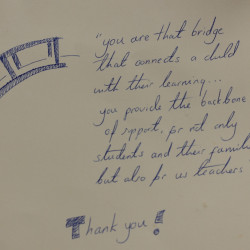 "you are that bridge
that connects a child
with their learning...
you provide the backbone
of support, for not only
students and their families
but also for us teachers
Thank you!